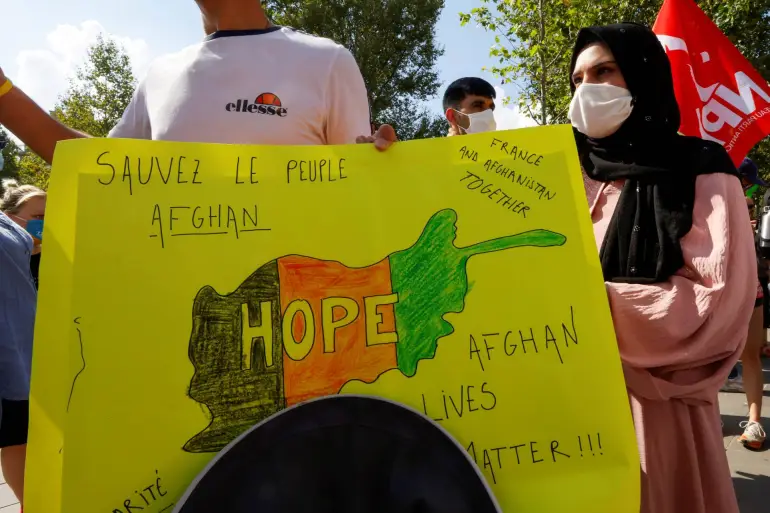 ellesse
SAUVEZ LE PEUPLE
AFGHAN
FRANCE
AND AFGHANISTAN
TOGETHER
HOPE
AFGHAN
LIVES
MATTER!!!